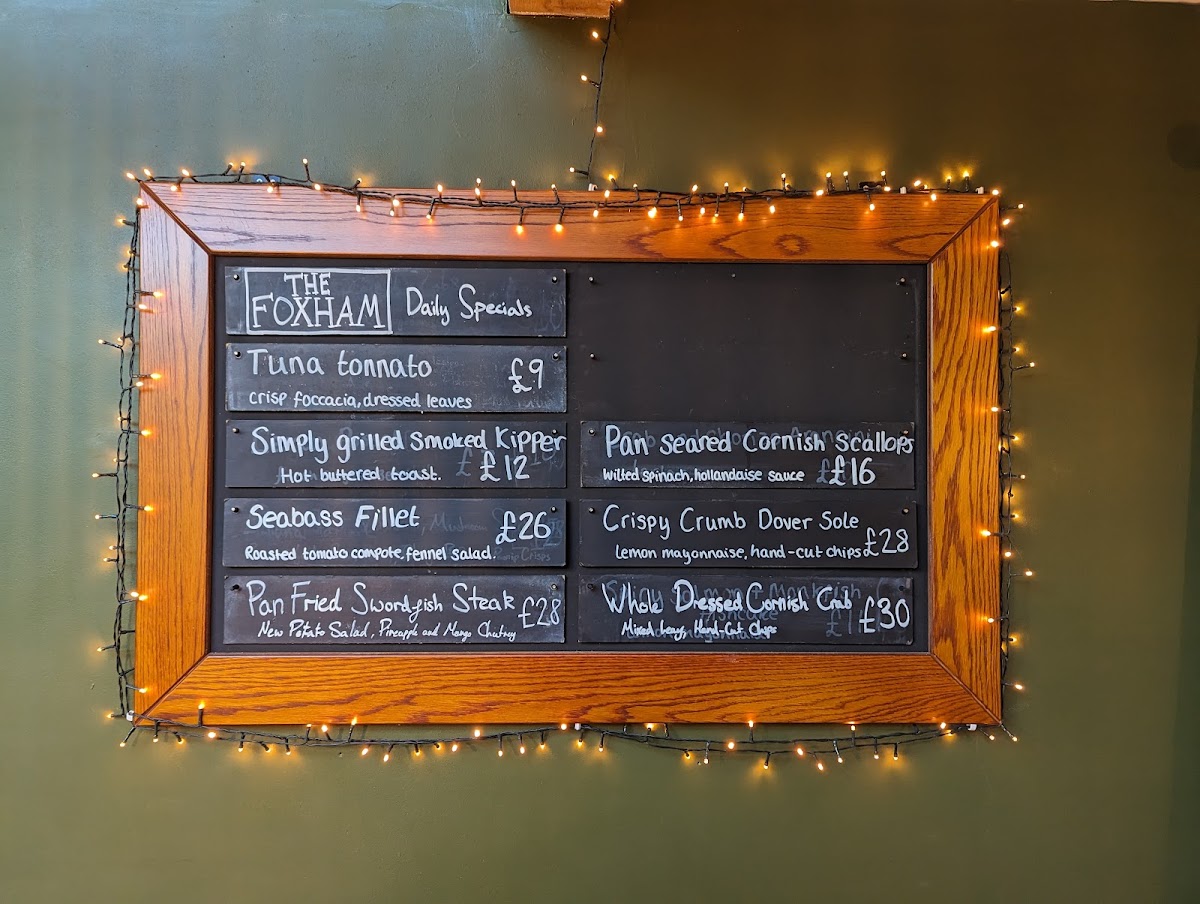 THE
FOXHAM
Daily Specials
Tuna tonnato £9
crisp foccacia, dressed leaves
Simply grilled smoked Kipper
Hot buttered toast. £12
Seabass Fillet £26
Roasted tomato compote, fennel salad.
Pan Fried Sword-fish Steak £28
New Potato Salad, Pineapple and Mango Chutney
Pan seared Cornish scallops
wilted spinach, hollandaise sauce £16
Crispy Crumb Dover Sole
Lemon mayonnaise, hand-cut chips £28
Whole Dressed Cornish Crab £30
Mixed leaves, Hand-Cut Chips